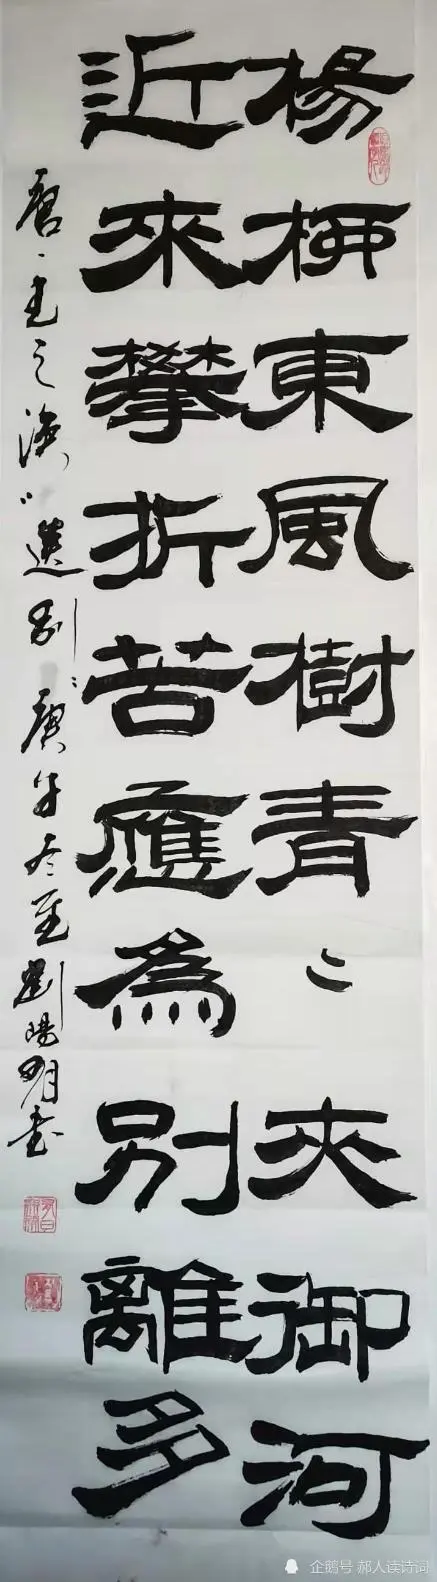 楊柳東風樹青〻夾御河
近來攀折苦應為別離多
唐·王之渙〝送別〞庚子冬至劉陽明書
企鹅号 郝人读诗词